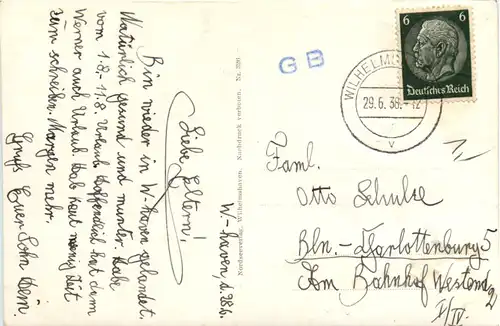 W-haven d. 28.6.
Liebe Eltern!
Bin wieder in W-haven gelandet.
Natürlich gesund und munter. Habe
vom 1.8.-11.8. Urlaub. Hoffendlich hat dem
Werner auch Urlaub. Hab heut wenig Zeit
zum schreiben. Morgen mehr.
Gruß Euer Sohn Hein.
Nordseeverlag, Wilhelmshaven. Nachdruck verboten. Nr.
GB
WILHELMS
29.6.36.-12
v
6 6
Deutsches Reich
Faml.
Otto Schulze
Bln.-Charlottenburg 5
Am Bahnhof Westend 2
I/IV.